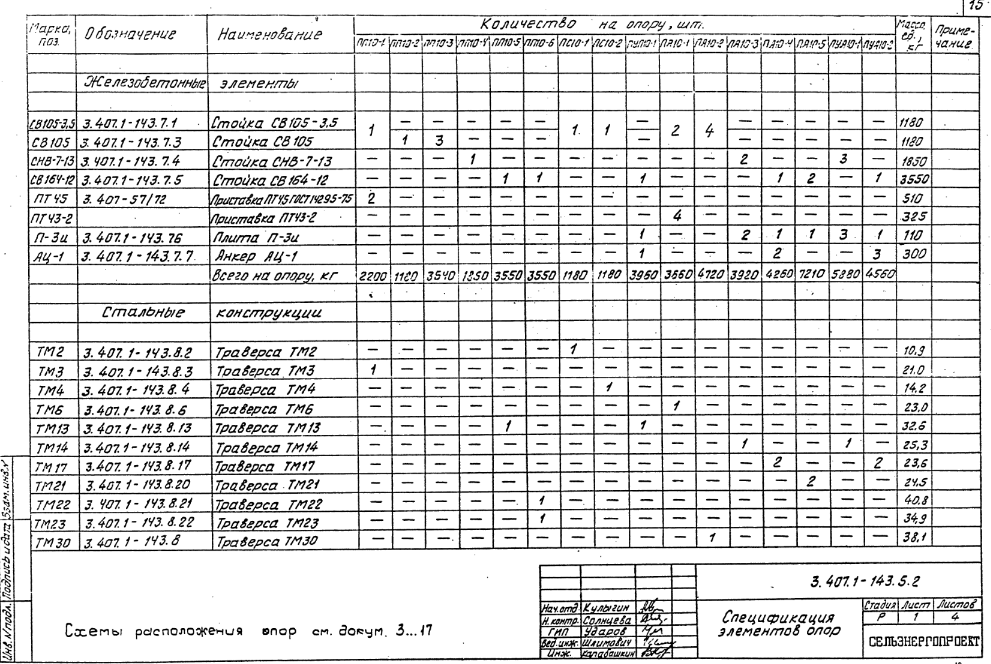 15
Марка, поз. Обозначение Наименование Количество на опору, шт. Масса ед., кг Примечание
ПС10-1 ПП10-2 ПП10-3 ПП10-4 ПП10-5 ПП10-6 ПС10-1 ПС10-2 ПУП10-1 ПА10-1 ПА10-2 ПА10-3 ПА10-4 ПА10-5 ПУА10-1 ПУА10-2
Железобетонные элементы
СВ105-3,5 3.407.1-143.7.1 Стойка СВ105-3,5 1 — — — — — 1 1 — 2 4 — — — — — 1180
СВ105 3.407.1-143.7.3 Стойка СВ105 1 3 — — — — — — — — — 1180
СНВ-7-13 3.407.1-143.7.4 Стойка СНВ-7-13 — — — 1 — — — — — — — 2 — — 3 — 1850
СВ164-12 3.407.1-143.7.5 Стойка СВ164-12 — — — — 1 1 — — 1 — — — 1 2 — 1 3550
ПТ45 3.407-57/72 Приставка ПТ45 ГОСТ 14295-75 2 — — — — — — — — — — — — — — — 510
ПТ43-2 Приставка ПТ43-2 — — — — — — — — — 4 — — — — — — 325
П-3и 3.407.1-143.76 Плита П-3и — — — — — — — — 1 — — 2 1 1 3 1 110
АЦ-1 3.407.1-143.7.7 Анкер АЦ-1 — — — — — — — — 1 — — — 2 — — 3 300
Всего на опору, кг 2200 1180 3540 1850 3550 3550 1180 1180 3960 3660 4720 3920 4260 7210 5880 4560
Стальные конструкции
ТМ2 3.407.1-143.8.2 Траверса ТМ2 — — — — — — 1 — — — — — — — — — 10,9
ТМ3 3.407.1-143.8.3 Траверса ТМ3 1 — — — — — — — — — — — — — — — 21.0
ТМ4 3.407.1-143.8.4 Траверса ТМ4 — — — — — — — 1 — — — — — — — — 14,2
ТМ6 3.407.1-143.8.6 Траверса ТМ6 — — — — — — — — — 1 — — — — — — 23,0
ТМ13 3.407.1-143.8.13 Траверса ТМ13 — — — — 1 — — — 1 — — — — — — — 32.6
ТМ14 3.407.1-143.8.14 Траверса ТМ14 — — — — — — — — — — — 1 — — 1 — 25,3
ТМ17 3.407.1-143.8.17 Траверса ТМ17 — — — — — — — — — — — — 2 — — 2 23,6
ТМ21 3.407.1-143.8.20 Траверса ТМ21 — — — — — — — — — — — — — 2 — — 24,5
ТМ22 3.407.1-143.8.21 Траверса ТМ22 — — — — — 1 — — — — — — — — — — 40.8
ТМ23 3.407.1-143.8.22 Траверса ТМ23 — — — — — 1 — — — — — — — — — — 34,9
ТМ30 3.407.1-143.8 Траверса ТМ30 — — — — — — — — — — 1 — — — — — 38,1
Схемы расположения опор см. докум. 3...17
3.407.1-143.5.2
Нач.отд Кулыгин
Н.контр. Солнцева
ГИП Ударов
Вед.инж. Шлимович
Инж. Карабашкин
Спецификация элементов опор
Стадия Лист Листов
Р 1 4
СЕЛЬЭНЕРГОПРОЕКТ
Инв.№подл. Подпись и дата Взам.инв.№